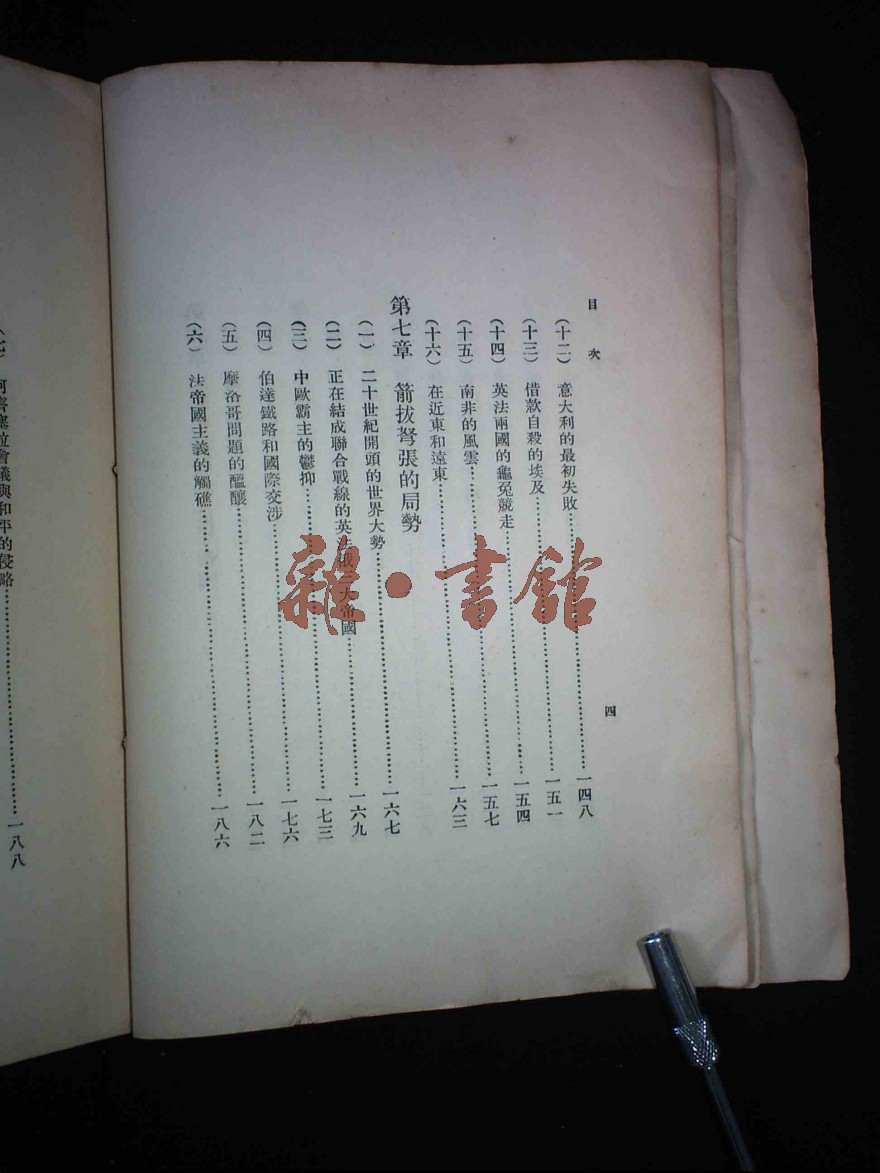 目次
四
(十二) 意大利的最初失敗……一四八
(十三) 借款自殺的埃及……一五一
(十四) 英法兩國的龜兔競走……一五四
(十五) 南非的風雲……一五七
(十六) 在近東和遠東……一六三
第七章 箭拔弩張的局勢
(一) 二十世紀開頭的世界大勢……一六七
(二) 正在結成聯合戰線的英法俄三大帝國……一六九
(三) 中歐霸主的鬱抑……一七三
(四) 伯達鐵路和國際交涉……一七六
(五) 摩洛哥問題的醞釀……一八二
(六) 法帝國主義的觸礁……一八六
塞拉會議與和平的侵略……一八八
雜·書館